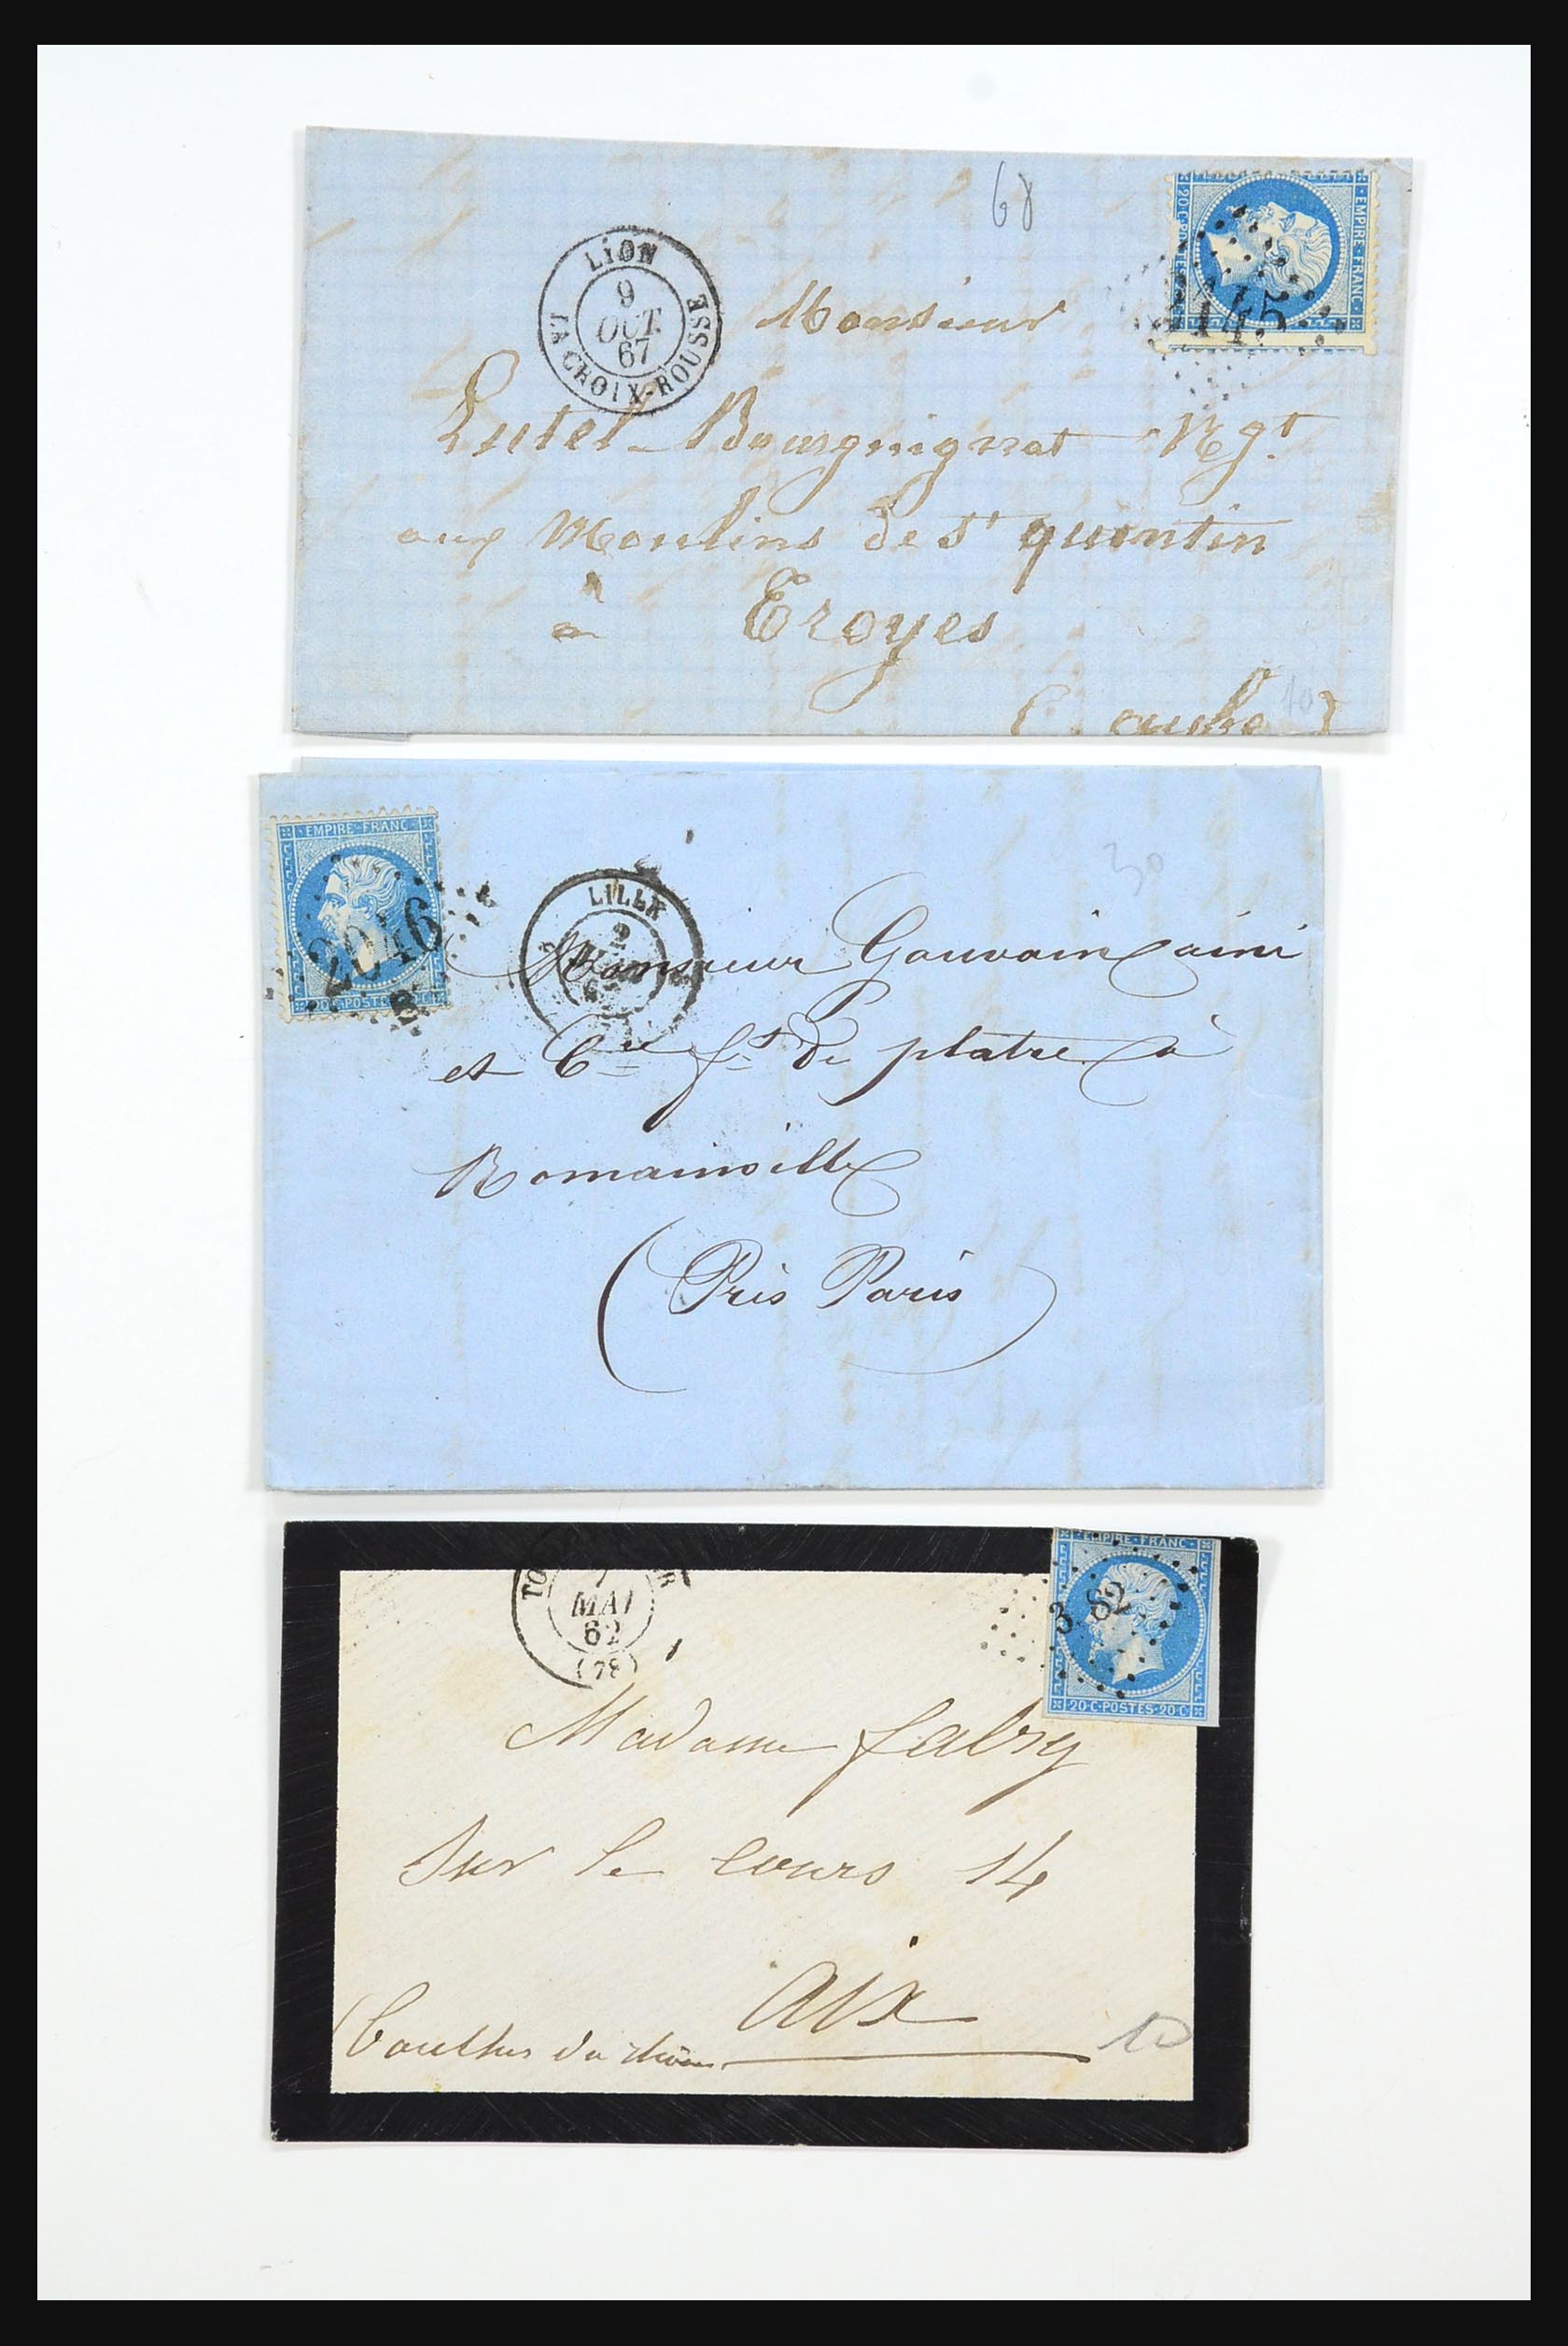 68
EMPIRE·FRANC·
20·C·POSTES
1145
LION
9
OCT.
67
LA CROIX-ROUSSE
Monsieur
Lutel-Bourguignat Ngt
aux Moulins de St quentin
à Troyes
(aube)
10
EMPIRE·FRANC·
2046
20·C·POSTES
LILLE
2
30
Monsieur Gouvain ainé
et Cie fts de platre à
Romainville
(Près Paris)
TO
7
MAI
62
(78)
EMPIRE·FRANC·
3 82
20·C·POSTES·20·C
Madame Fabry
Sur le cours 14
Aix
Bouches du Rhône
10